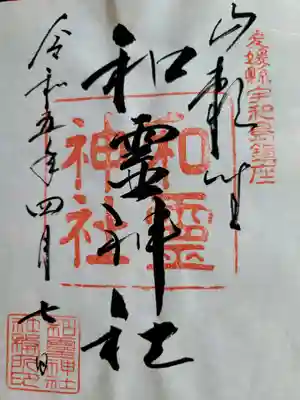 愛媛縣宇和島鎮座
山頼
和霊神社
和靈神社
令和五年四月七日
和靈神社社務所印